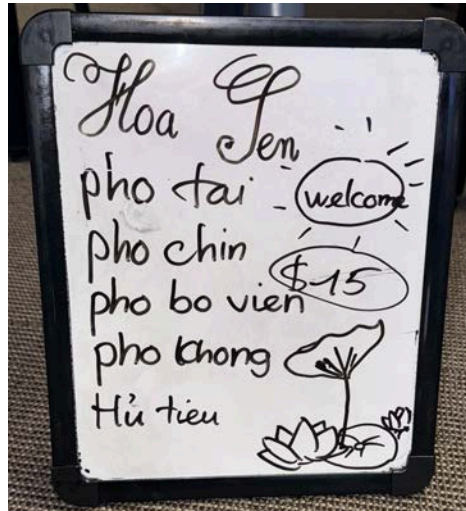 Hoa Sen
pho tai
welcome
pho chin
$15
pho bo vien
pho khong
Hủ tieu